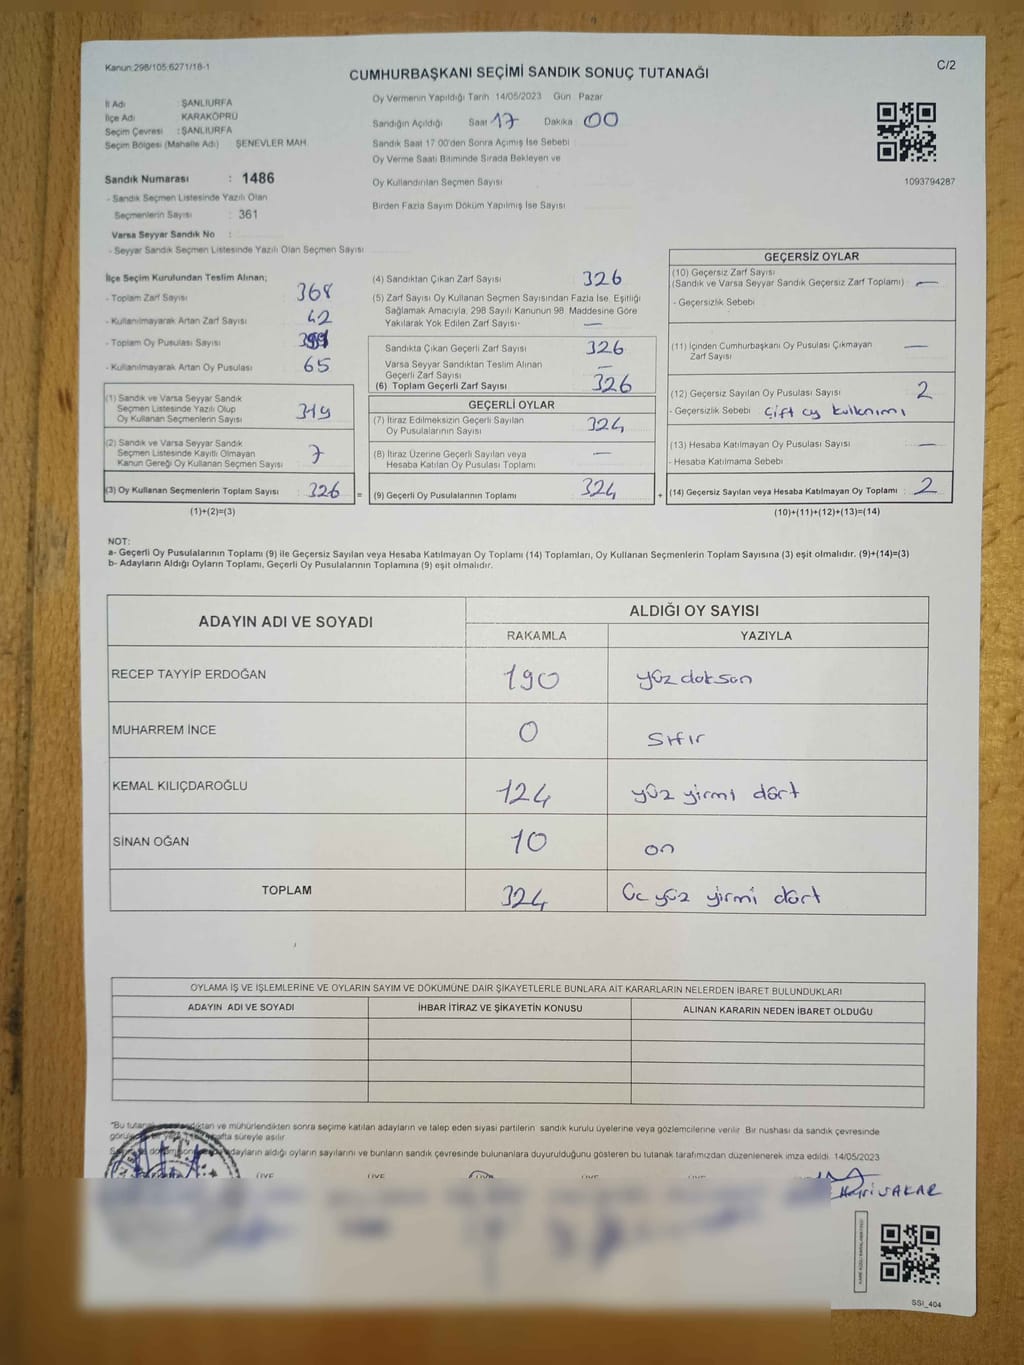 Kanun:298/105,6271/18-1
C/2
CUMHURBAŞKANI SEÇİMİ SANDIK SONUÇ TUTANAĞI
İl Adı : ŞANLIURFA
İlçe Adı KARAKÖPRÜ
Seçim Çevresi : ŞANLIURFA
Seçim Bölgesi (Mahalle Adı) ŞENEVLER MAH.
Sandık Numarası : 1486
- Sandık Seçmen Listesinde Yazılı Olan
Seçmenlerin Sayısı : 361
Varsa Seyyar Sandık No :
- Seyyar Sandık Seçmen Listesinde Yazılı Olan Seçmen Sayısı
Oy Vermenin Yapıldığı Tarih 14/05/2023 Gün Pazar
Sandığın Açıldığı Saat 17 Dakika 00
Sandık Saat 17.00'den Sonra Açımış İse Sebebi :
Oy Verme Saati Bitiminde Sırada Bekleyen ve
Oy Kullandırılan Seçmen Sayısı
Birden Fazla Sayım Döküm Yapılmış İse Sayısı
1093794287
İlçe Seçim Kurulundan Teslim Alınan;
- Toplam Zarf Sayısı 368
- Kullanılmayarak Artan Zarf Sayısı 42
- Toplam Oy Pusulası Sayısı
- Kullanılmayarak Artan Oy Pusulası 65
(1) Sandık ve Varsa Seyyar Sandık
Seçmen Listesinde Yazılı Olup
Oy Kullanan Seçmenlerin Sayısı 319
(2) Sandık ve Varsa Seyyar Sandık
Seçmen Listesinde Kayıtlı Olmayan
Kanun Gereği Oy Kullanan Seçmen Sayısı 7
(3) Oy Kullanan Seçmenlerin Toplam Sayısı 326 =
(1)+(2)=(3)
(4) Sandıktan Çıkan Zarf Sayısı 326
(5) Zarf Sayısı Oy Kullanan Seçmen Sayısından Fazla İse, Eşitliği
Sağlamak Amacıyla, 298 Sayılı Kanunun 98. Maddesine Göre
Yakılarak Yok Edilen Zarf Sayısı- —
Sandıkta Çıkan Geçerli Zarf Sayısı 326
Varsa Seyyar Sandıktan Teslim Alınan
Geçerli Zarf Sayısı —
(6) Toplam Geçerli Zarf Sayısı 326
GEÇERLİ OYLAR
(7) İtiraz Edilmeksizin Geçerli Sayılan
Oy Pusulalarının Sayısı 324
(8) İtiraz Üzerine Geçerli Sayılan veya
Hesaba Katılan Oy Pusulası Toplamı —
(9) Geçerli Oy Pusulalarının Toplamı 324 +
GEÇERSİZ OYLAR
(10) Geçersiz Zarf Sayısı
(Sandık ve Varsa Seyyar Sandık Geçersiz Zarf Toplamı) : —
- Geçersizlik Sebebi
(11) İçinden Cumhurbaşkanı Oy Pusulası Çıkmayan
Zarf Sayısı —
(12) Geçersiz Sayılan Oy Pusulası Sayısı 2
- Geçersizlik Sebebi Çift oy kullnımı
(13) Hesaba Katılmayan Oy Pusulası Sayısı —
- Hesaba Katılmama Sebebi
(14) Geçersiz Sayılan veya Hesaba Katılmayan Oy Toplamı : 2
(10)+(11)+(12)+(13)=(14)
NOT:
a- Geçerli Oy Pusulalarının Toplamı (9) ile Geçersiz Sayılan veya Hesaba Katılmayan Oy Toplamı (14) Toplamları, Oy Kullanan Seçmenlerin Toplam Sayısına (3) eşit olmalıdır. (9)+(14)=(3)
b- Adayların Aldığı Oyların Toplamı, Geçerli Oy Pusulalarının Toplamına (9) eşit olmalıdır.
ADAYIN ADI VE SOYADI ALDIĞI OY SAYISI
RAKAMLA YAZIYLA
RECEP TAYYİP ERDOĞAN 190 yüz doksan
MUHARREM İNCE 0 Sıfır
KEMAL KILIÇDAROĞLU 124 yüz yirmi dört
SİNAN OĞAN 10 on
TOPLAM 324 Üc yüz yirmi dört
OYLAMA İŞ VE İŞLEMLERİNE VE OYLARIN SAYIM VE DÖKÜMÜNE DAİR ŞİKAYETLERLE BUNLARA AİT KARARLARIN NELERDEN İBARET BULUNDUKLARI
ADAYIN ADI VE SOYADI İHBAR İTİRAZ VE ŞİKAYETİN KONUSU ALINAN KARARIN NEDEN İBARET OLDUĞU
"Bu tutanak ve mühürlendikten sonra seçime katılan adayların ve talep eden siyasi partilerin sandık kurulu üyelerine veya gözlemcilerine verilir. Bir nüshası da sandık çevresinde
hafta süreyle asılır
adayların aldığı oyların sayılarını ve bunların sandık çevresinde bulunanlara duyurulduğunu gösteren bu tutanak tarafımızdan düzenlenerek imza edildi. 14/05/2023
ÜYE ÜYE ÜYE ÜYE ÜYE
SSİ_404